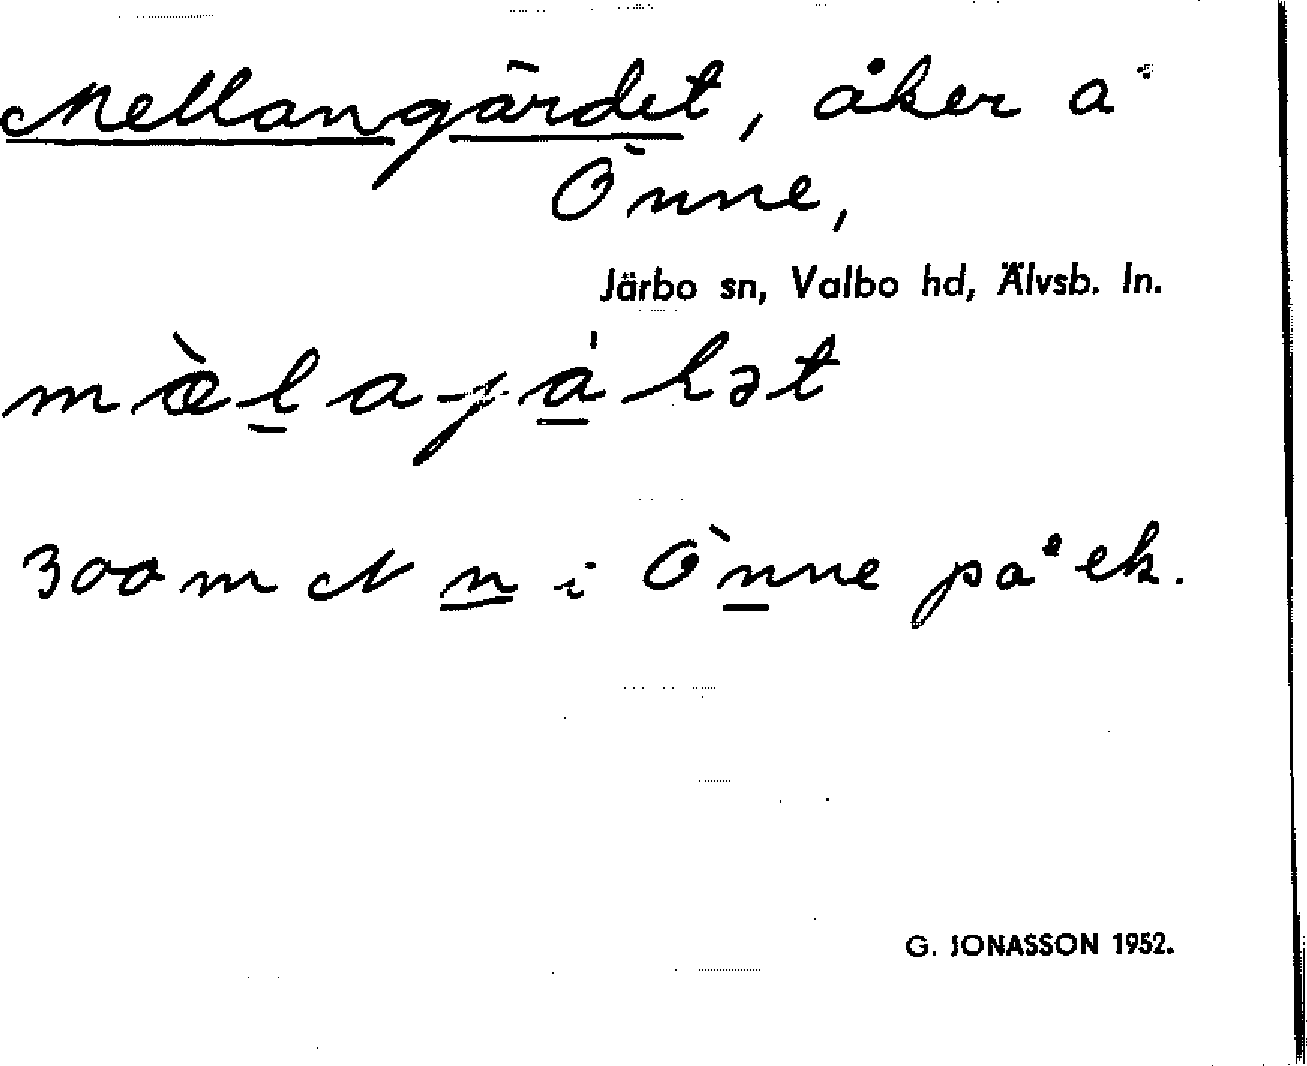 Mellangärdet, åker å
Önne,
Järbo sn, Valbo hd, Älvsb. ln.
300 m N n i Önne på ek.
G. JONASSON 1952.